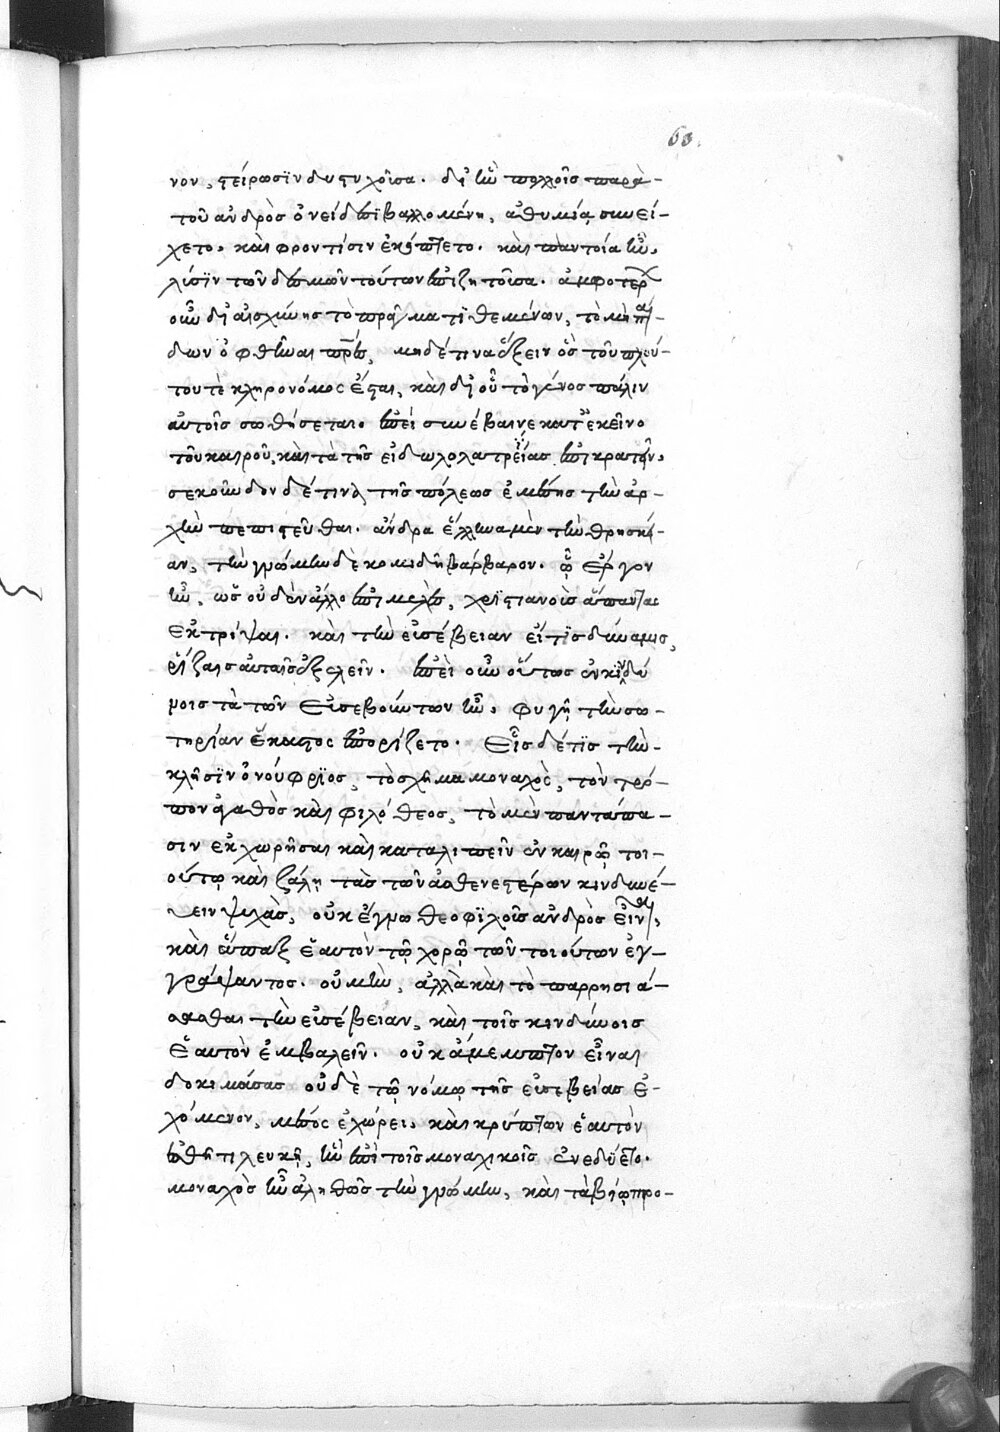 60.
νον, στείρωσϊν δυστυχοῦσα. δι' ἣν πολλοῖς παρὰ-
τοῦ ἀνδρὸς ὀνείδεσι βαλλομένη, ἀθυμίᾳ συνεί-
χετο, καὶ φροντίσιν ἐκόπτετο. καὶ παντοία ἦν,
λύσϊν τῶν δεσμῶν τούτων ἐπιζητοῦσα. ἀμφοτέρ
οὖν δι' αἰσχύνης τὸ πρᾶγμα τιθεμένων, τὸ μὴ παί-
δων ὀφθῆναι πρες, μηδέ τινα ἕξειν ὃς τοῦ πλού-
του τὲ κληρονόμος ἔσται, καὶ δι' οὗ τὸ γένος πάλιν
αὐτοῖς σωθήσεται. ἐπεὶ συνέβαινε κατ' ἐκεῖνο
τοῦ καιροῦ, καὶ τὰ τῆς εἰδωλολατρείας ἐπικρατεῖν,
σεκοῦνδον δέ τινα τῆς πόλεως ἐμέσης τὴν ἀρ-
χὴν πεπιστεῦσθαι. ἄνδρα ἕλληνα μὲν τὴν θρησκεί-
αν, τὴν γνώμην δὲ κομιδῇ βάρβαρον. ᾧ ἔργον
ἦν, ὡς οὐδὲν ἄλλο ἐπιμελὲς, χρϊστιανοὺς ἅπαντας
ἐκτρίψαι. καὶ τὴν εὐσέβειαν εἴ τϊς δύναμις,
ῥίζαις αὐταῖς ἐξελεῖν. ἐπεὶ οὖν οὕτως ἐν κϊνδύ
μοις τὰ τῶν εὐσεβούντων ἦν, φυγῇ τὴν σω-
τηρίαν ἕκαστος ἐπορίζετο. εἷς δέ τϊς τὴν-
κλῆσϊν ὀνούφρϊος, τὸ σχῆμα μοναχὸς, τὸν τρό-
πον ἀγαθὸς καὶ φιλόθεος, τὸ μὲν παντάπα-
σιν ἐκχωρῆσαι καὶ καταλιπεῖν ἐν καιρῷ τοι-
ούτῳ καὶ ζάλῃ τὰς τῶν ἀσθενεστέρων κινδυνεύ-
ειν ψυχὰς, οὐκ ἔγνω θεοφϊλοῦς ἀνδρὸς εἶναι,
καὶ ἅπαξ ἑαυτὸν τῷ χορῷ τῶν τοιούτων ἐγ-
γράψαντος. οὐ μὴν, ἀλλὰ καὶ τὸ παρρησιά-
σασθαι τὴν εὐσέβειαν, καὶ τοῖς κινδύνοις
ἑαυτὸν ἐμβαλεῖν. οὐκ ἄμεμπτον εἶναι
δοκιμάσας οὐδὲ τῷ νόμῳ τῆς εὐσεβείας ἑ-
χόμενον, μέσος ἐχώρει. καὶ κρύπτων ἑαυτὸν
ἐσθῆτι λευκῇ, ἣν ἐπὶ τοῖς μοναχικοῖς ἐνεδύετο.
μοναχὸς ἦν ἀληθῶς τὴν γνώμην, καὶ τὰ βίῳ προ-